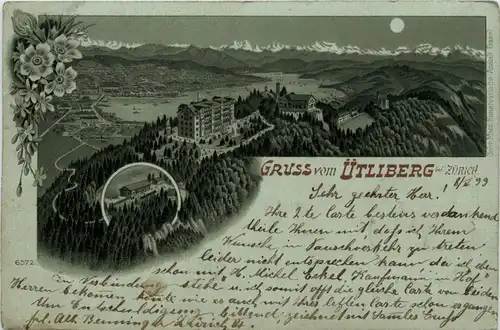 GRUSS vom ÜTLIBERG bei Zürich
8/II 99
Sehr geehrter Herr!
Ihre 2te Carte bestens verdankend
theile Ihnen mit, dass ich Ihrem
Wunsche in Tauschverkehr zu treten
leider nicht entsprechen kann da ich den
schon mit H. Michel Eckel, Kaufmann in
In Verbindung stehe u. ich somit oft die gleiche Carte von beiden
Herren bekommen könnte wie es auch mit Ihrer letzten Carte schon ergangen.
Um Entschuldigung bittend, zeichnet mit Gruss
Alb. Benninger Zürich
6572